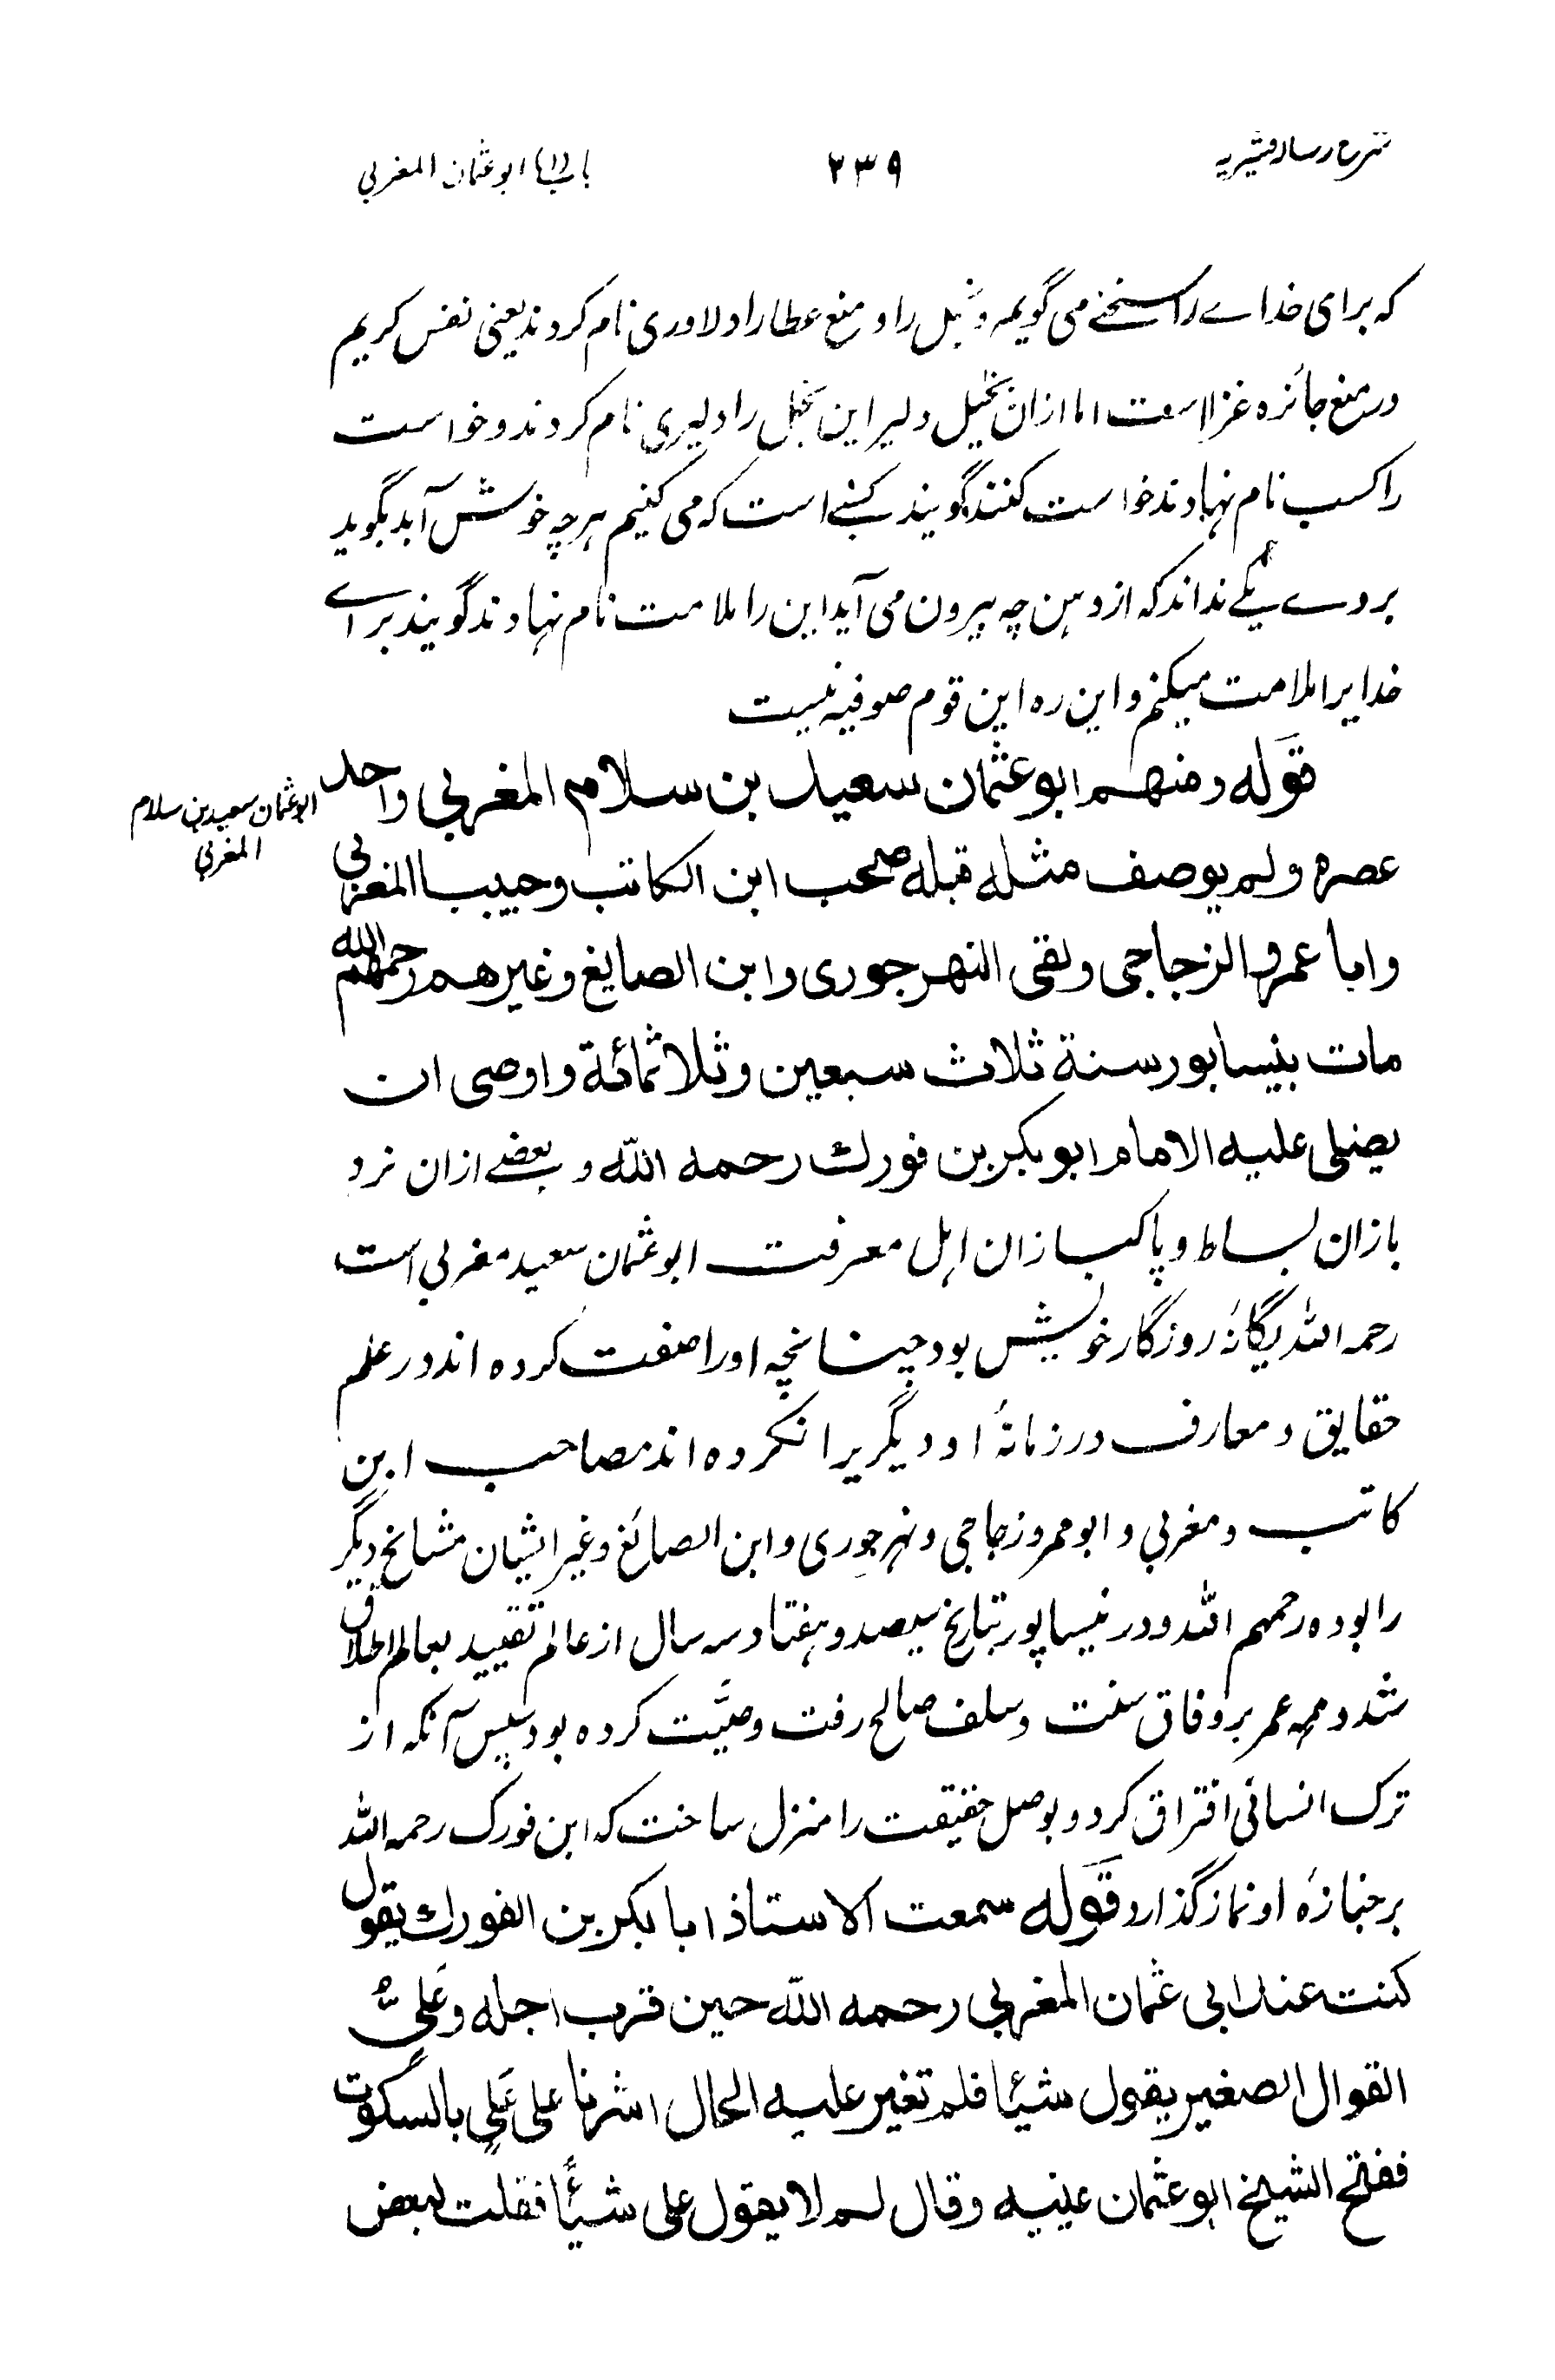 شرح رساله قشیریه
۲۳۹
باب (۱) ابو عثمان المغربی
که برای خداے را سخنے می گویم و بخل را و منع عطا را دلاوری نام کردند یعنی نفس کریم
در منع جائزه غزا است اما ازان بخیل دلیر این بخل را دلیری نام کردند و خواست
را کسب نام نهادند خواست کنند گویند کسبے است که می کنیم هرچه خوش آید بگوید
بروے یکے نداند که از دهن چه بیرون می آید این را ملامت نام نهادند گویند براے
خدایرا ملامت میکنم و این ره این قوم صوفیه نیست
قوله ومنهم ابو عثمان سعید بن سلام المغربی واحد
ابو عثمان سعید بن سلام
المغربی
عصره ولم یوصف مثله قبله صحب ابن الکاتب وحبیبا المغربی
وابا عمرو الزجاجی ولقی النهرجوری وابن الصایغ وغیرهم رحمهم الله
مات بنیسابور سنة ثلاث سبعین وثلاثمائة واوصی ان
یصلی علیه الامام ابو بکر بن فورك رحمه الله و بعضے ازان نرد
بازان بساط و پاکبازان اهل معرفت ابو عثمان سعید مغربی است
رحمه الله یگانهٔ روزگار خویش بود چنانچه او را صفت کرده اند در علم
حقایق و معارف در زمانهٔ او دیگریرا نکرده اند مصاحب ابن
کاتب و مغربی و ابو عمرو زجاجی و نهرجوری و ابن الصائغ و غیر ایشان مشایخ دیگر
را بوده رحمهم الله و در نیساپور بتاریخ سیصد و هفتاد سه سال از عالم تقیید بعالم اطلاق
شد و همه عمر بر وفاق سنت و سلف صالح رفت وصیّت کرده بود سپس آنکه از
ترک انسانی افتراق کرد و بوصل حقیقت را منزل ساخت که ابن فورک رحمه الله
بر جنازهٔ او نماز گذارد قوله سمعت الاستاذ ابا بکر بن الفورك یقول
کنت عند ابی عثمان المغربی رحمه الله حین قرب اجله وعلیٌّ
القوال الصغیر یقول شیئا فلم تغیر علیه الحال اشرنا علی علی بالسکوت
ففتح الشیخ ابو عثمان عینیه وقال لم لا یقول علی شیئًا فقلت لبعض